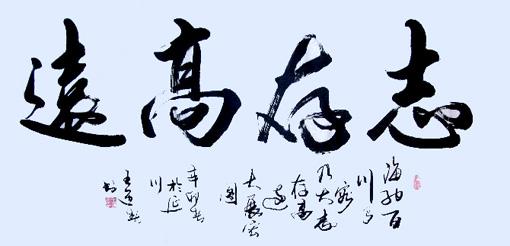 志存高遠
海納百
川有
容
乃大志
存高
遠
大展宏
圖
辛卯春
於延
川